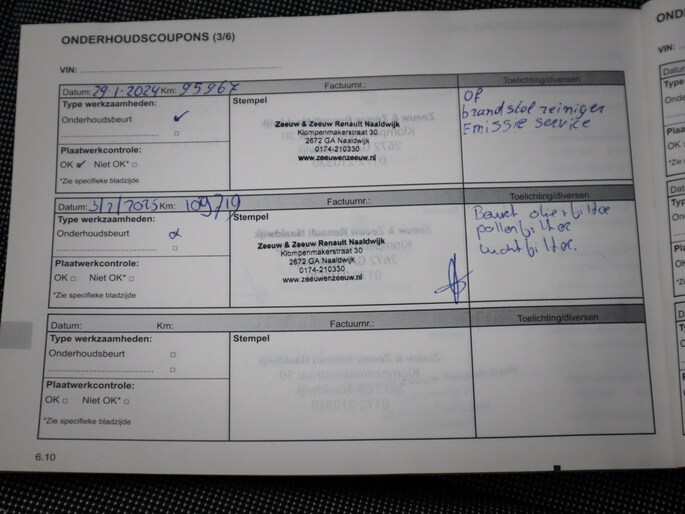 ONDERHOUDSCOUPONS (3/6)
VIN:
Datum: 29-1-2024 Km: 95967 Factuurnr.: Toelichting/diversen
Type werkzaamheden:
Onderhoudsbeurt ✓
Stempel
Zeeuw & Zeeuw Renault Naaldwijk
Klompenmakerstraat 30
2672 GA Naaldwijk
0174-210330
www.zeeuwenzeeuw.nl
OF
brandstof reiniger
Emissie service
Plaatwerkcontrole:
OK ✓ Niet OK* □
*Zie specifieke bladzijde
Datum: 3/2/2025 Km: 109719 Factuurnr.: Toelichting/diversen
Type werkzaamheden:
Onderhoudsbeurt
Stempel
Zeeuw & Zeeuw Renault Naaldwijk
Klompenmakerstraat 30
2672 GA Naaldwijk
0174-210330
www.zeeuwenzeeuw.nl
Beurt oliefilter
pollenfilter
luchtfilter.
Plaatwerkcontrole:
OK □ Niet OK* □
*Zie specifieke bladzijde
Datum: Km: Factuurnr.: Toelichting/diversen
Type werkzaamheden:
Onderhoudsbeurt □
Stempel
Plaatwerkcontrole:
OK □ Niet OK* □
*Zie specifieke bladzijde
6.10